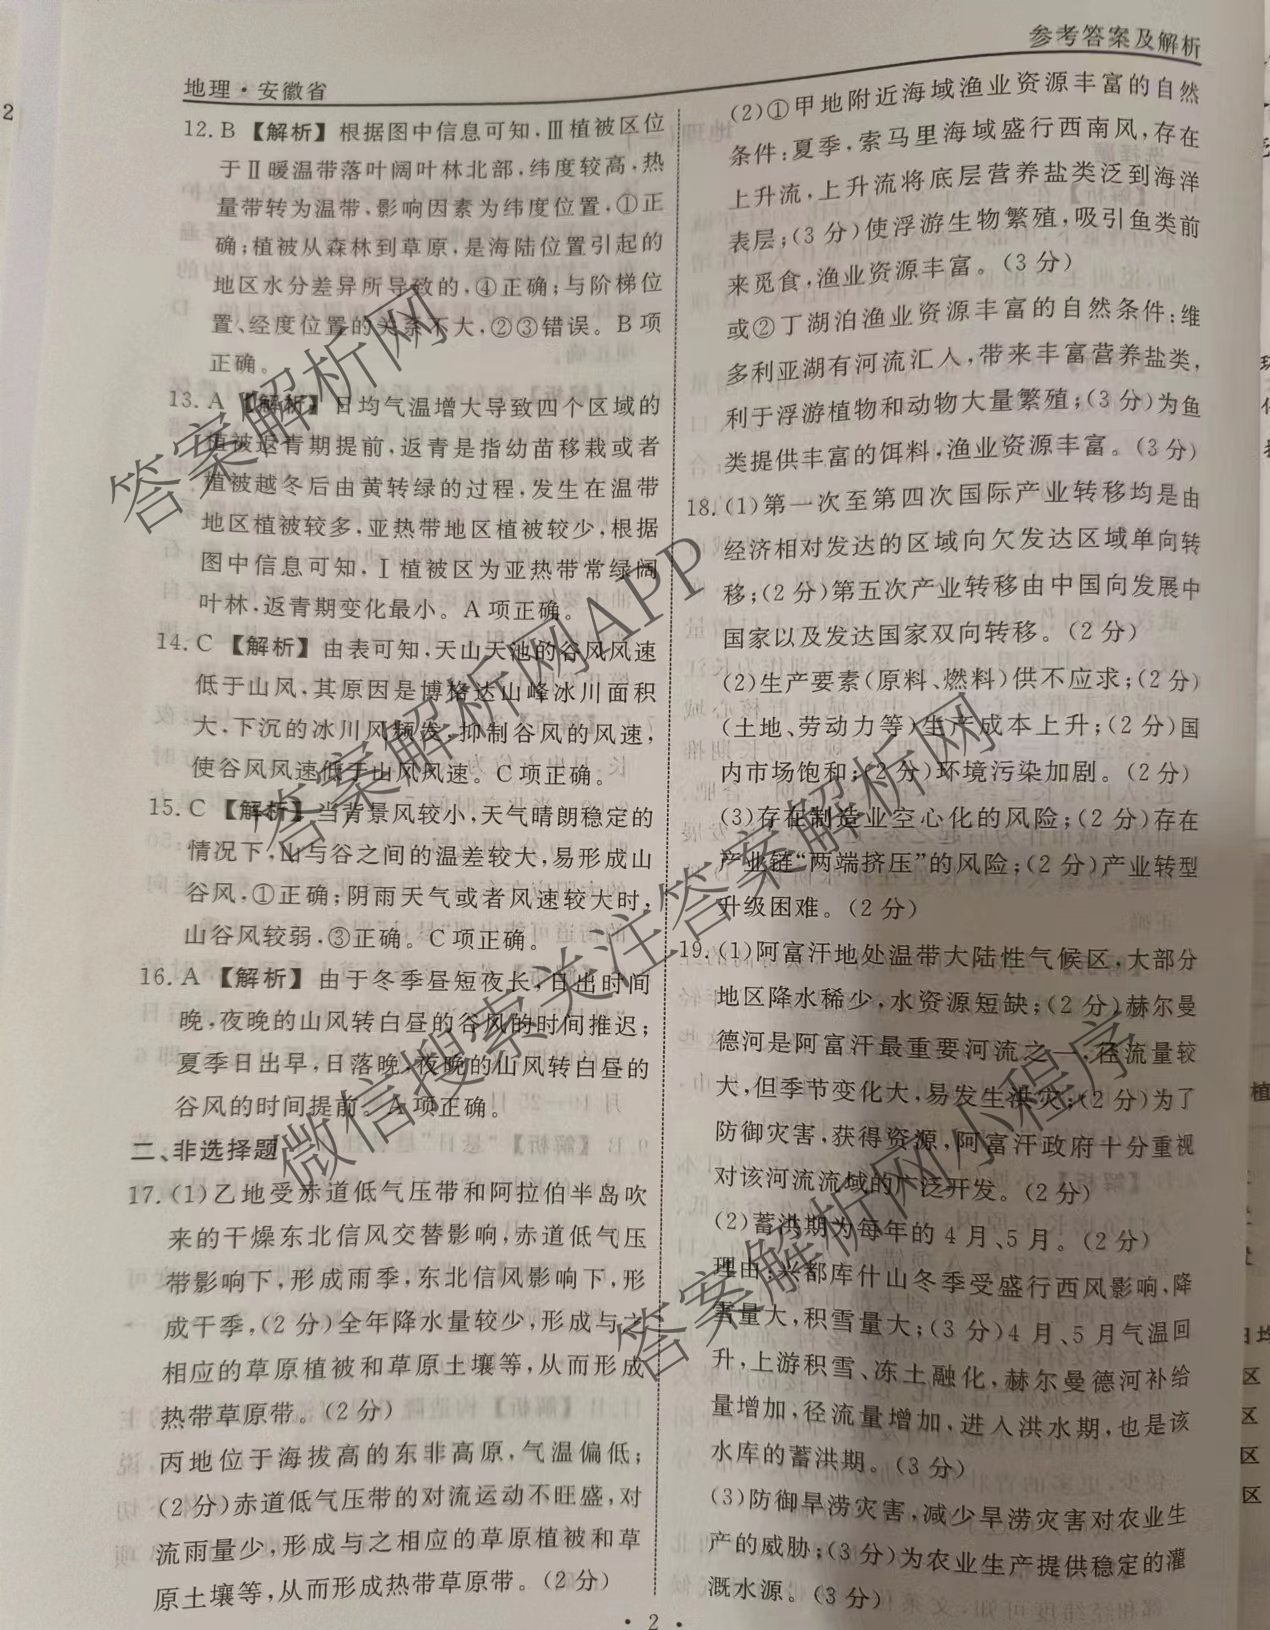 参考答案及解析
地理·安徽省
2
12. B 【解析】根据图中信息可知,Ⅲ植被区位
于Ⅱ暖温带落叶阔叶林北部,纬度较高,热
量带转为温带、影响因素为纬度位置,①正
确;植被从森林到草原,是海陆位置引起的
地区水分差异所导致的,④正确;与阶梯位
置、经度位置的关系不大,②③错误。B项
正确。
13. A 【解析】日均气温增大导致四个区域的
植被返青期提前,返青是指幼苗移栽或者
植被越冬后由黄转绿的过程,发生在温带
地区植被较多,亚热带地区植被较少,根据
图中信息可知,Ⅰ植被区为亚热带常绿阔
叶林,返青期变化最小。A项正确。
14. C 【解析】由表可知,天山天池的谷风风速
低于山风,其原因是博格达山峰冰川面积
大,下沉的冰川风频发,抑制谷风的风速,
使谷风风速低于山风风速。C项正确。
15. C 【解析】当背景风较小,天气晴朗稳定的
情况下,山与谷之间的温差较大,易形成山
谷风,①正确;阴雨天气或者风速较大时,
山谷风较弱,③正确。C项正确。
16. A 【解析】由于冬季昼短夜长,日出时间
晚,夜晚的山风转白昼的谷风的时间推迟;
夏季日出早,日落晚,夜晚的山风转白昼的
谷风的时间提前。A项正确。
二、非选择题
17. (1)乙地受赤道低气压带和阿拉伯半岛吹
来的干燥东北信风交替影响,赤道低气压
带影响下,形成雨季,东北信风影响下,形
成干季,(2分)全年降水量较少,形成与之
相应的草原植被和草原土壤等,从而形成
热带草原带。(2分)
丙地位于海拔高的东非高原,气温偏低;
(2分)赤道低气压带的对流运动不旺盛,对
流雨量少,形成与之相应的草原植被和草
原土壤等,从而形成热带草原带。(2分)
(2)①甲地附近海域渔业资源丰富的自然
条件:夏季,索马里海域盛行西南风,存在
上升流,上升流将底层营养盐类泛到海洋
表层;(3分)使浮游生物繁殖,吸引鱼类前
来觅食,渔业资源丰富。(3分)
或②丁湖泊渔业资源丰富的自然条件:维
多利亚湖有河流汇入,带来丰富营养盐类,
利于浮游植物和动物大量繁殖;(3分)为鱼
类提供丰富的饵料,渔业资源丰富。(3分)
18. (1)第一次至第四次国际产业转移均是由
经济相对发达的区域向欠发达区域单向转
移;(2分)第五次产业转移由中国向发展中
国家以及发达国家双向转移。(2分)
(2)生产要素(原料、燃料)供不应求;(2分)
(土地、劳动力等)生产成本上升;(2分)国
内市场饱和;(2分)环境污染加剧。(2分)
(3)存在制造业空心化的风险;(2分)存在
产业链“两端挤压”的风险;(2分)产业转型
升级困难。(2分)
19. (1)阿富汗地处温带大陆性气候区,大部分
地区降水稀少,水资源短缺;(2分)赫尔曼
德河是阿富汗最重要河流之一,径流量较
大,但季节变化大,易发生洪灾;(2分)为了
防御灾害,获得资源,阿富汗政府十分重视
对该河流流域的广泛开发。(2分)
(2)蓄洪期为每年的4月、5月。(2分)
理由:兴都库什山冬季受盛行西风影响,降
雪量大,积雪量大;(3分)4月、5月气温回
升,上游积雪、冻土融化,赫尔曼德河补给
量增加,径流量增加,进入洪水期,也是该
水库的蓄洪期。(3分)
(3)防御旱涝灾害,减少旱涝灾害对农业生
产的威胁;(3分)为农业生产提供稳定的灌
溉水源。(3分)
·2·
答案解析网
答案解析网APP
微信搜索关注答案解析网
答案解析网小程序